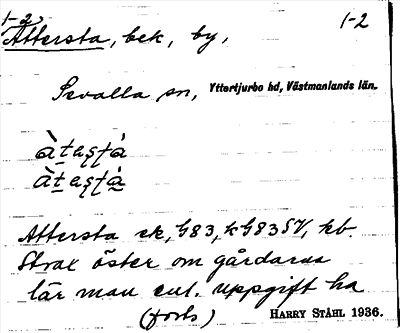 1-2, 1-2
Attersta, bek, by,
Sevalla sn, Yttertjurbo hd, Västmanlands län.
àtęs̨t̨à
àtęs̨t̨à
Attersta ek, G83, k G83 SV, kb.
Strax öster om gårdarna
lär man enl. uppgift ha
(forts) HARRY STÅHL 1936.